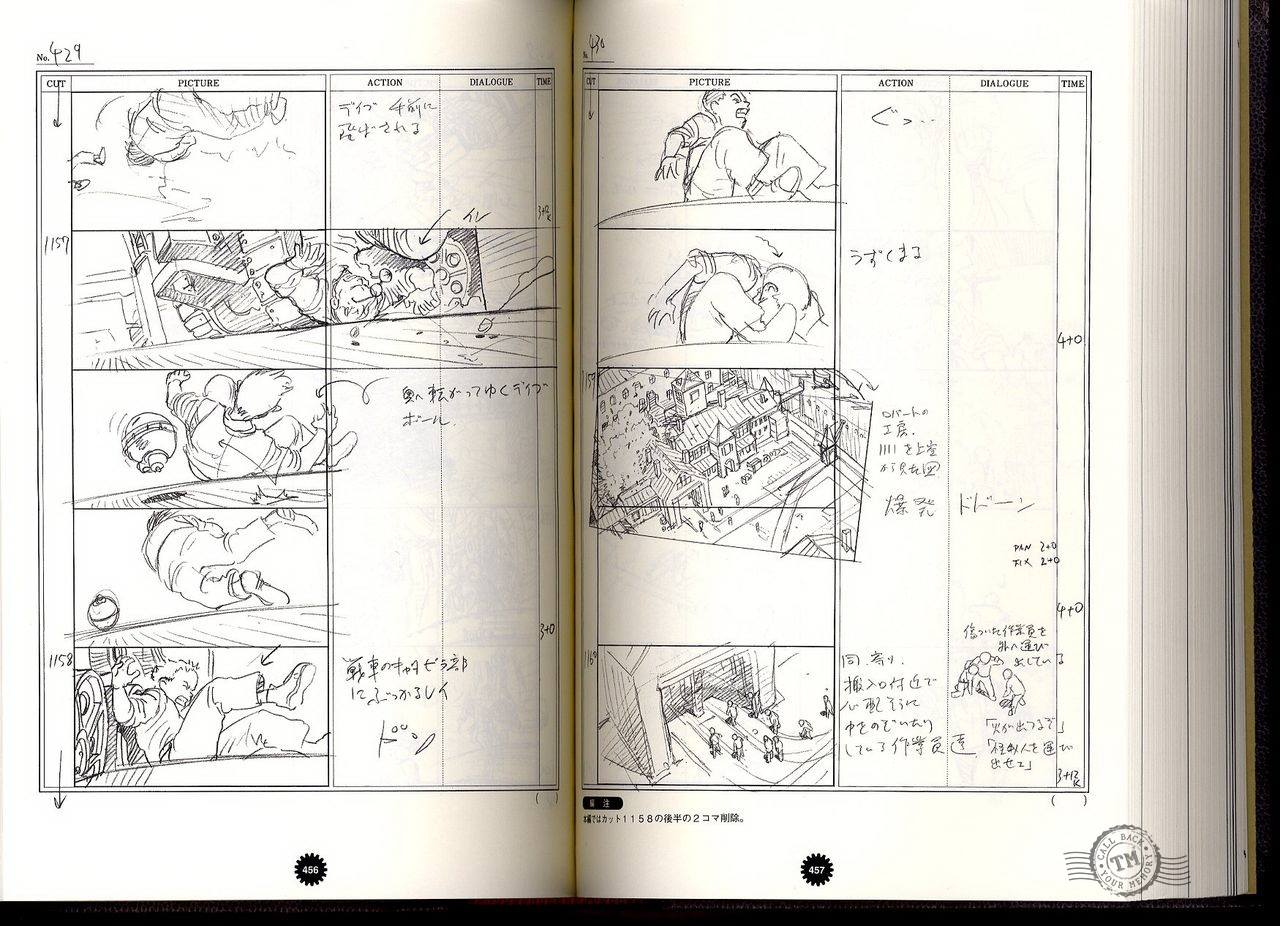 No. 429
CUT PICTURE ACTION DIALOGUE TIME
デイブ 手前に
飛ばされる
3+12K
1157
イレ
奥へ転がってゆくデイブ
ボール
3+0
1158
戦車のキャタピラ部
にぶつかるレイ
ドーン
( )
456
No. 430
CUT PICTURE ACTION DIALOGUE TIME
ぐっ‥
うずくまる
4+0
1159
ロバートの
工房.
を上空
爆発 ドドーン
PAN 2+0
FIX 2+0
4+0
1160
同. 寄り.
搬入口付近で
心配そうに
中をのぞいたり
している作業員達
傷ついた作業員を
外へ運び
出している
「火が出てるぞ」
出せェ」
3+12K
( )
編 注
本編ではカット1158の後半の2コマ削除。
457
CALL BACK
TM
YOUR MEMORY